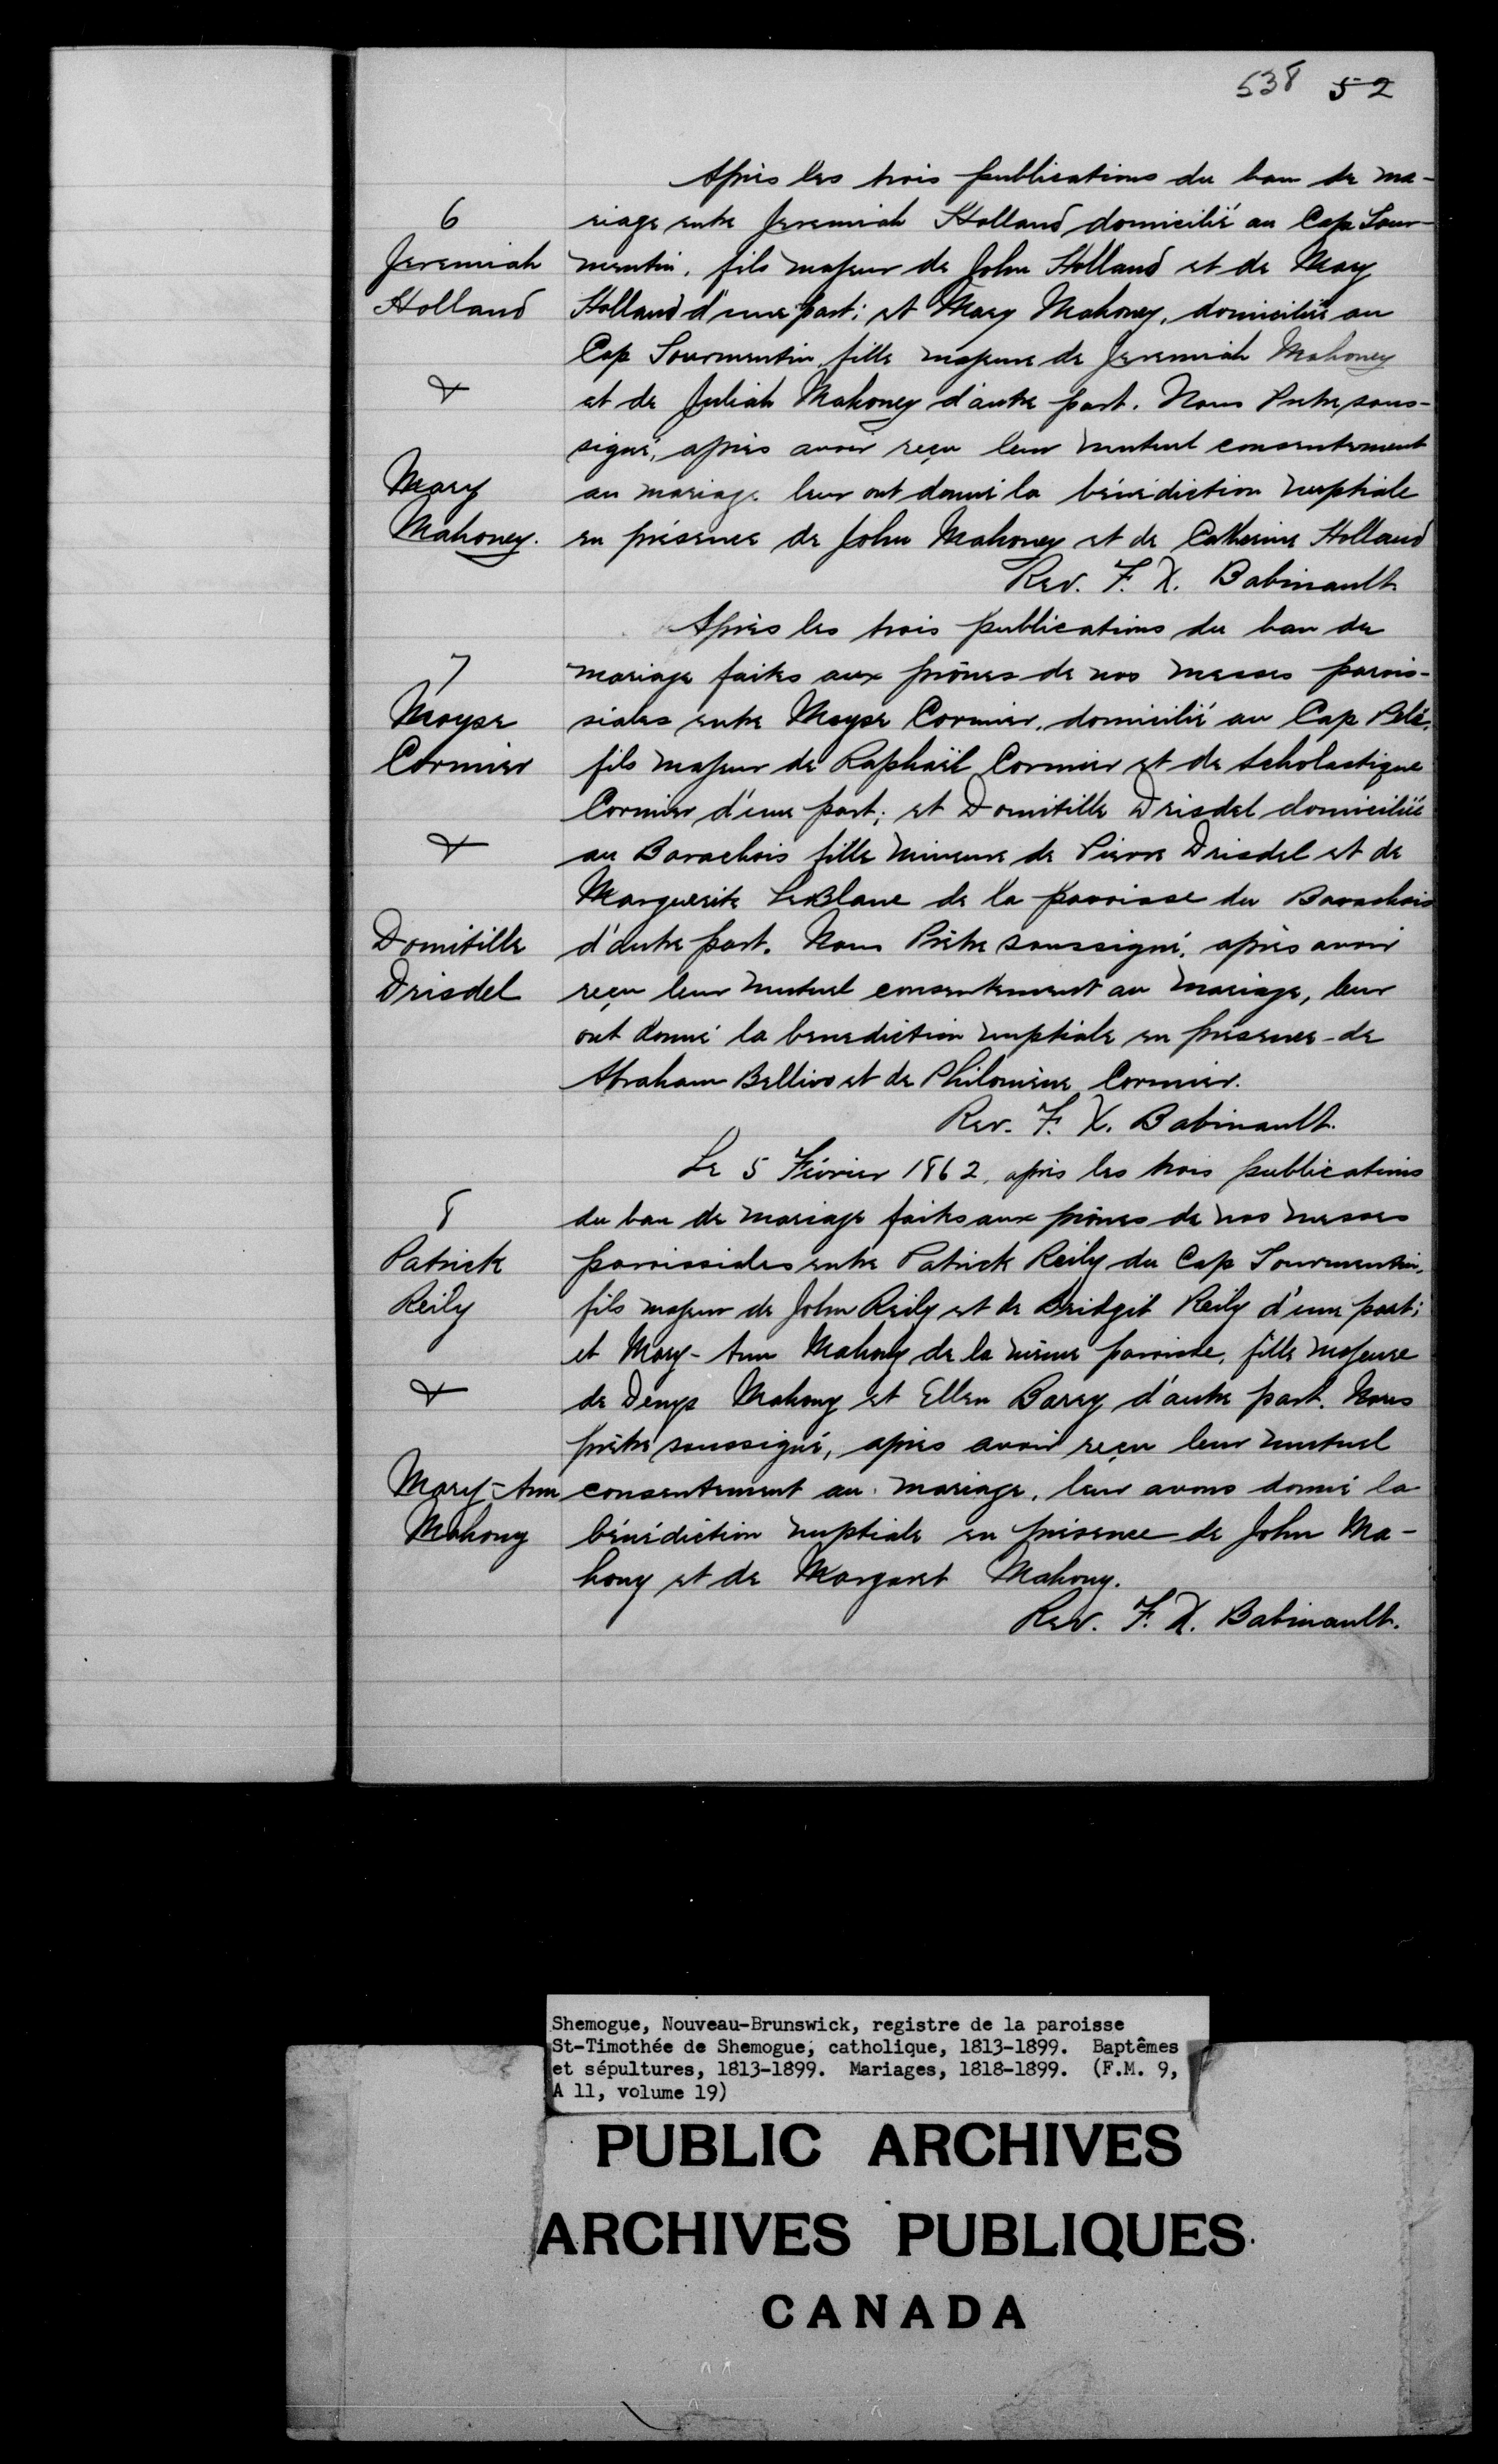 538 52
Après les trois publications du ban de ma-
6
riage entre Jeremiah Holland domicilié au Cap Tour-
Jeremiah
mentin, fils majeur de John Holland et de Mary
Holland
Holland d'une part; et Mary Mahoney, domiciliée au
Cap Tourmentin, fille majeure de Jeremiah Mahoney
&
et de Juliah Mahoney d'autre part. Nous Prêtre sous-
signé, après avoir reçu leur mutuel consentement
Mary
au mariage leur ont donné la bénédiction nuptiale
Mahoney.
en présence de John Mahoney et de Catherine Holland
Rev. F. X. Babinault.
Après les trois publications du ban de
7
mariage faites aux prônes de nos messes parois-
Moyse
siales entre Moyse Cormier, domicilié au Cap Pelé,
Cormier
fils majeur de Raphaël Cormier et de Scholastique
Cormier d'une part; et Domitille Drisdel domiciliée
&
au Barachois fille mineure de Pierre Drisdel et de
Marguerite LeBlanc de la paroisse du Barachois
Domitille
d'autre part. Nous Prêtre soussigné, après avoir
Drisdel
reçu leur mutuel consentement au mariage, leur
ont donné la benediction nuptiale en présence de
Abraham Bellivo et de Philomène Cormier.
Rev. F. X. Babinault.
Le 5 Février 1862, après les trois publications
8
du ban de mariage faites aux prônes de nos messes
Patrick
paroissiales entre Patrick Reily du Cap Tourmentin,
Reily
fils majeur de John Reily et de Bridgit Reily d'une part;
et Mary-Ann Mahony de la même paroisse, fille majeure
&
de Denys Mahony et Ellen Barry d'autre part. Nous
prêtre soussigné, après avoir reçu leur mutuel
Mary-Ann
consentement au mariage, leur avons donné la
Mahony
bénédiction nuptiale en présence de John Ma-
hony et de Margaret Mahony.
Rev. F. X. Babinault.
Shemogue, Nouveau-Brunswick, registre de la paroisse
St-Timothée de Shemogue, catholique, 1813-1899. Baptêmes
et sépultures, 1813-1899. Mariages, 1818-1899. (F.M. 9,
A 11, volume 19)
PUBLIC ARCHIVES
ARCHIVES PUBLIQUES
CANADA